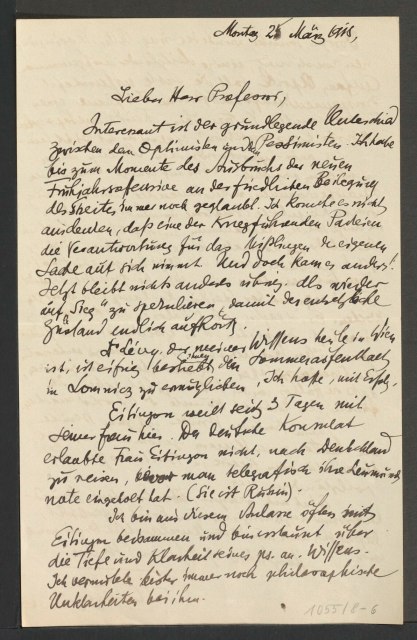 Montag 25 März 1918,
Lieber Herr Professor,
Interessant ist der grundlegende Unterschied
zwischen den Optimisten und den Pessimisten. Ich habe
bis zum Momente des Ausbruchs der neuen
Frühjahrsoffensive an der friedlichen Beilegung
des Streites, immer noch geglaubt. Ich konnte es nicht
ausdenken, daß eine der Kriegführenden Parteien
die Verantwortung für das Mißlingen der eigenen
Sache auf sich nimmt. Und doch kam es anders!
Jetzt bleibt nichts anderes übrig, als wieder
auf „Sieg“ zu spekulieren, damit der entsetzliche
Zustand endlich aufhört.
Dr Lévy, der meines Wissens heute in Wien
ist, ist eifrig bestrebt, Ihnen den Sommeraufenthalt
in Lomnicz zu ermöglichen, Ich hoffe, mit Erfolg.
Eitingon weilt seit 3 Tagen mit
seiner Frau hier. Das deutsche Konsulat
erlaubte Frau Eitingon nicht, nach Deutschland
zu reisen, bevor man telegrafisch ihre Leumunds-
note eingeholt hat. (Sie ist Russin).
Ich bin aus diesem Anlasse öfters mit
Eitingon beisammen und bin erstaunt über
die Tiefe und Klarheit seines ps. an. Wissens.
Ich vermutete bisher immer noch philosophische
Unklarheiten bei ihm.
1055/8-6